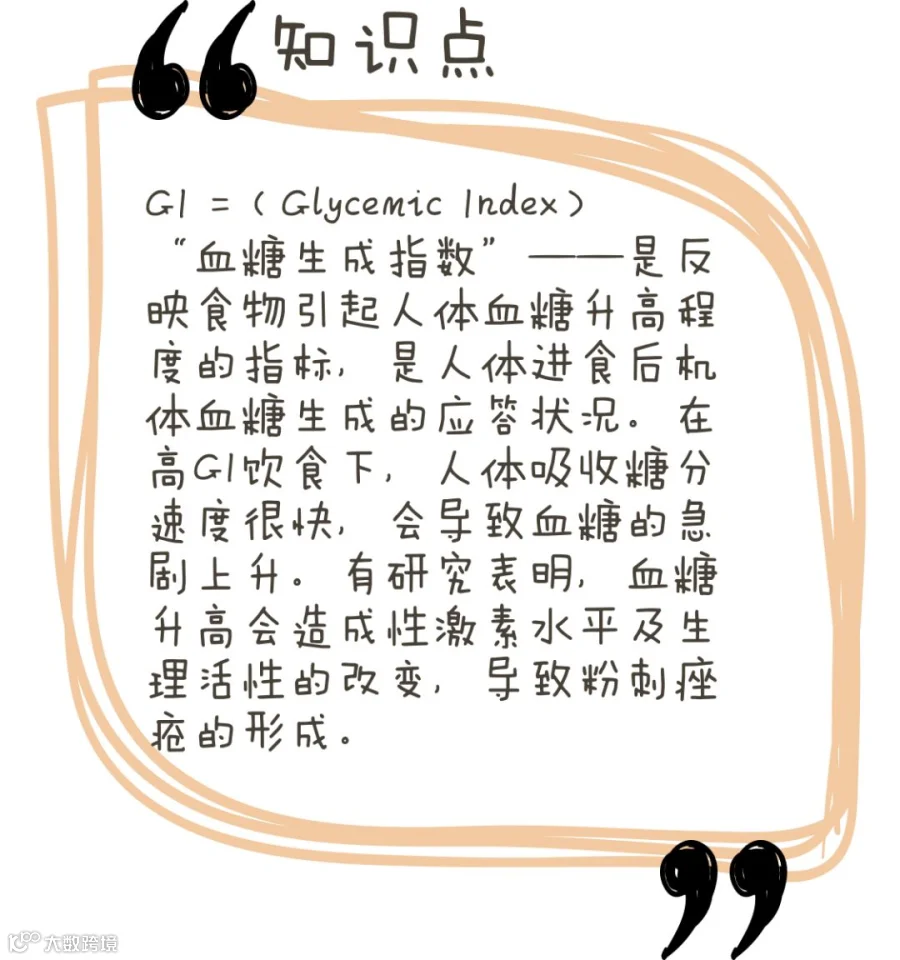 知识点
GI =（Glycemic Index）
“血糖生成指数”——是反
映食物引起人体血糖升高程
度的指标，是人体进食后机
体血糖生成的应答状况。在
高GI饮食下，人体吸收糖分
速度很快，会导致血糖的急
剧上升。有研究表明，血糖
升高会造成性激素水平及生
理活性的改变，导致粉刺痤
疮的形成。
大数跨境